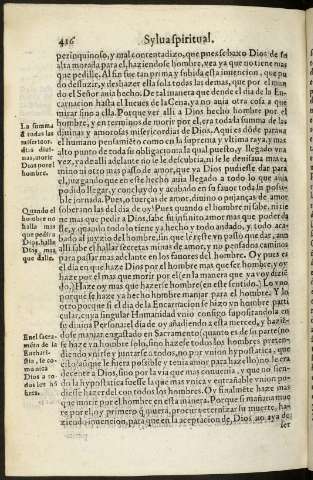 416 Sylua spiritual.
perezinquoso, y mal contentadizo, que pues se baxo Dios de su
alta morada para el, haziendose hombre, vea ya que no tiene mas
que pedille. Al fin fue tan prima y subida esta inuencion, que pu
do desluzir, y deshazer ella sola todas las demas, que por el mun
do el Señor auia hecho. De tal manera que desde el dia de la En-
carnacion hasta el Iueues de la Cena, ya no auia otra cosa a que
mirar sino a ella. Porque ver alli a Dios hecho hombre por el
hombre, y en terminos de morir por el, era toda la summa de las
diuinas y amorosas misericordias de Dios. Aqui es dõde paraua
el humano pensamiẽto como en la suprema y vltima raya, y mas
alto punto de toda su obligacion: a la qual puesto, y llegado vna
vez, ya de alli adelante no se le descubria, ni se le deuisaua mas ca
mino ni otro mas passo de amor, que ya Dios pudiesse dar para
el, juzgando que en este hecho auia llegado a todo lo que auia
podido llegar, y concluydo y acabado en su fauor toda la possi-
ble jornada. Pues, o fuerças de amor, dinino o pujanças de amor
soberano las del dia de oy! Pues quando el hombre ni sabe, ni tie
ne mas que pedir a Dios, sabe su infinito amor mas que poder da
lle, y quando todo lo tiene ya hecho y todo andado, y todo aca
bado al juyzio del hombre, sin que le reste vn passo que dar, aun
alli sabe el hallar secretas minas de amor, y no pensados caminos
para passar mas adelante en los fauores del hombre. Oy pues es
el dia en que haze Dios por el hombre mas que morir por el, oy
haze por el mas que morir por el (en la manera que ya voy dizié
do,) Haze oy mas que hazerse hombre (en este sentido.) Lo vno,
porque se haze ya hecho hombre manjar para el hombre. Y lo
otro porque si el dia de la Encarnacion se hizo vn hombre parti
cular, cuya singular Humanidad vnio consigo sapositandola en
su diuina Persona: el dia de oy añadiendo a esta merced, y hazien
dose manjar engastado en Sacramento, quanto es de su parte (no
se haze vn hombre solo, sino hazese todos los hombres preten-
diendo vnirse y juntarse con todos, no por vnion hypostatica, que
cierto aunque le fuera possible y tenia amor para hazello) no le era
decente a Dios, sino por la via que mas conuenia, y que no sien-
do la hypostatica fuesse la que mas vnica y entrañable vnion pu-
diesse hazer del con todos los hombres. Oy finalmẽte haze mas
que morir por el hombre en esta manera. Porque si mañana mue
re por el, oy primero q̃ muera, procura eternizar su muerte, ha-
ziendo inuencion, para que en la aceptacion de Dios no aya de
ser
La summa
d̃ todas las
misericor-
dias diui-
nas, morir
Dios por el
hombre.
Quando el
hombre no
halla mas
que pedir a
Dios, halla
Dios mas
que dalle.
En el Sacra
mẽto de la
Euchari-
stia, se co-
munica
Dios a to-
dos los hõ
bres.